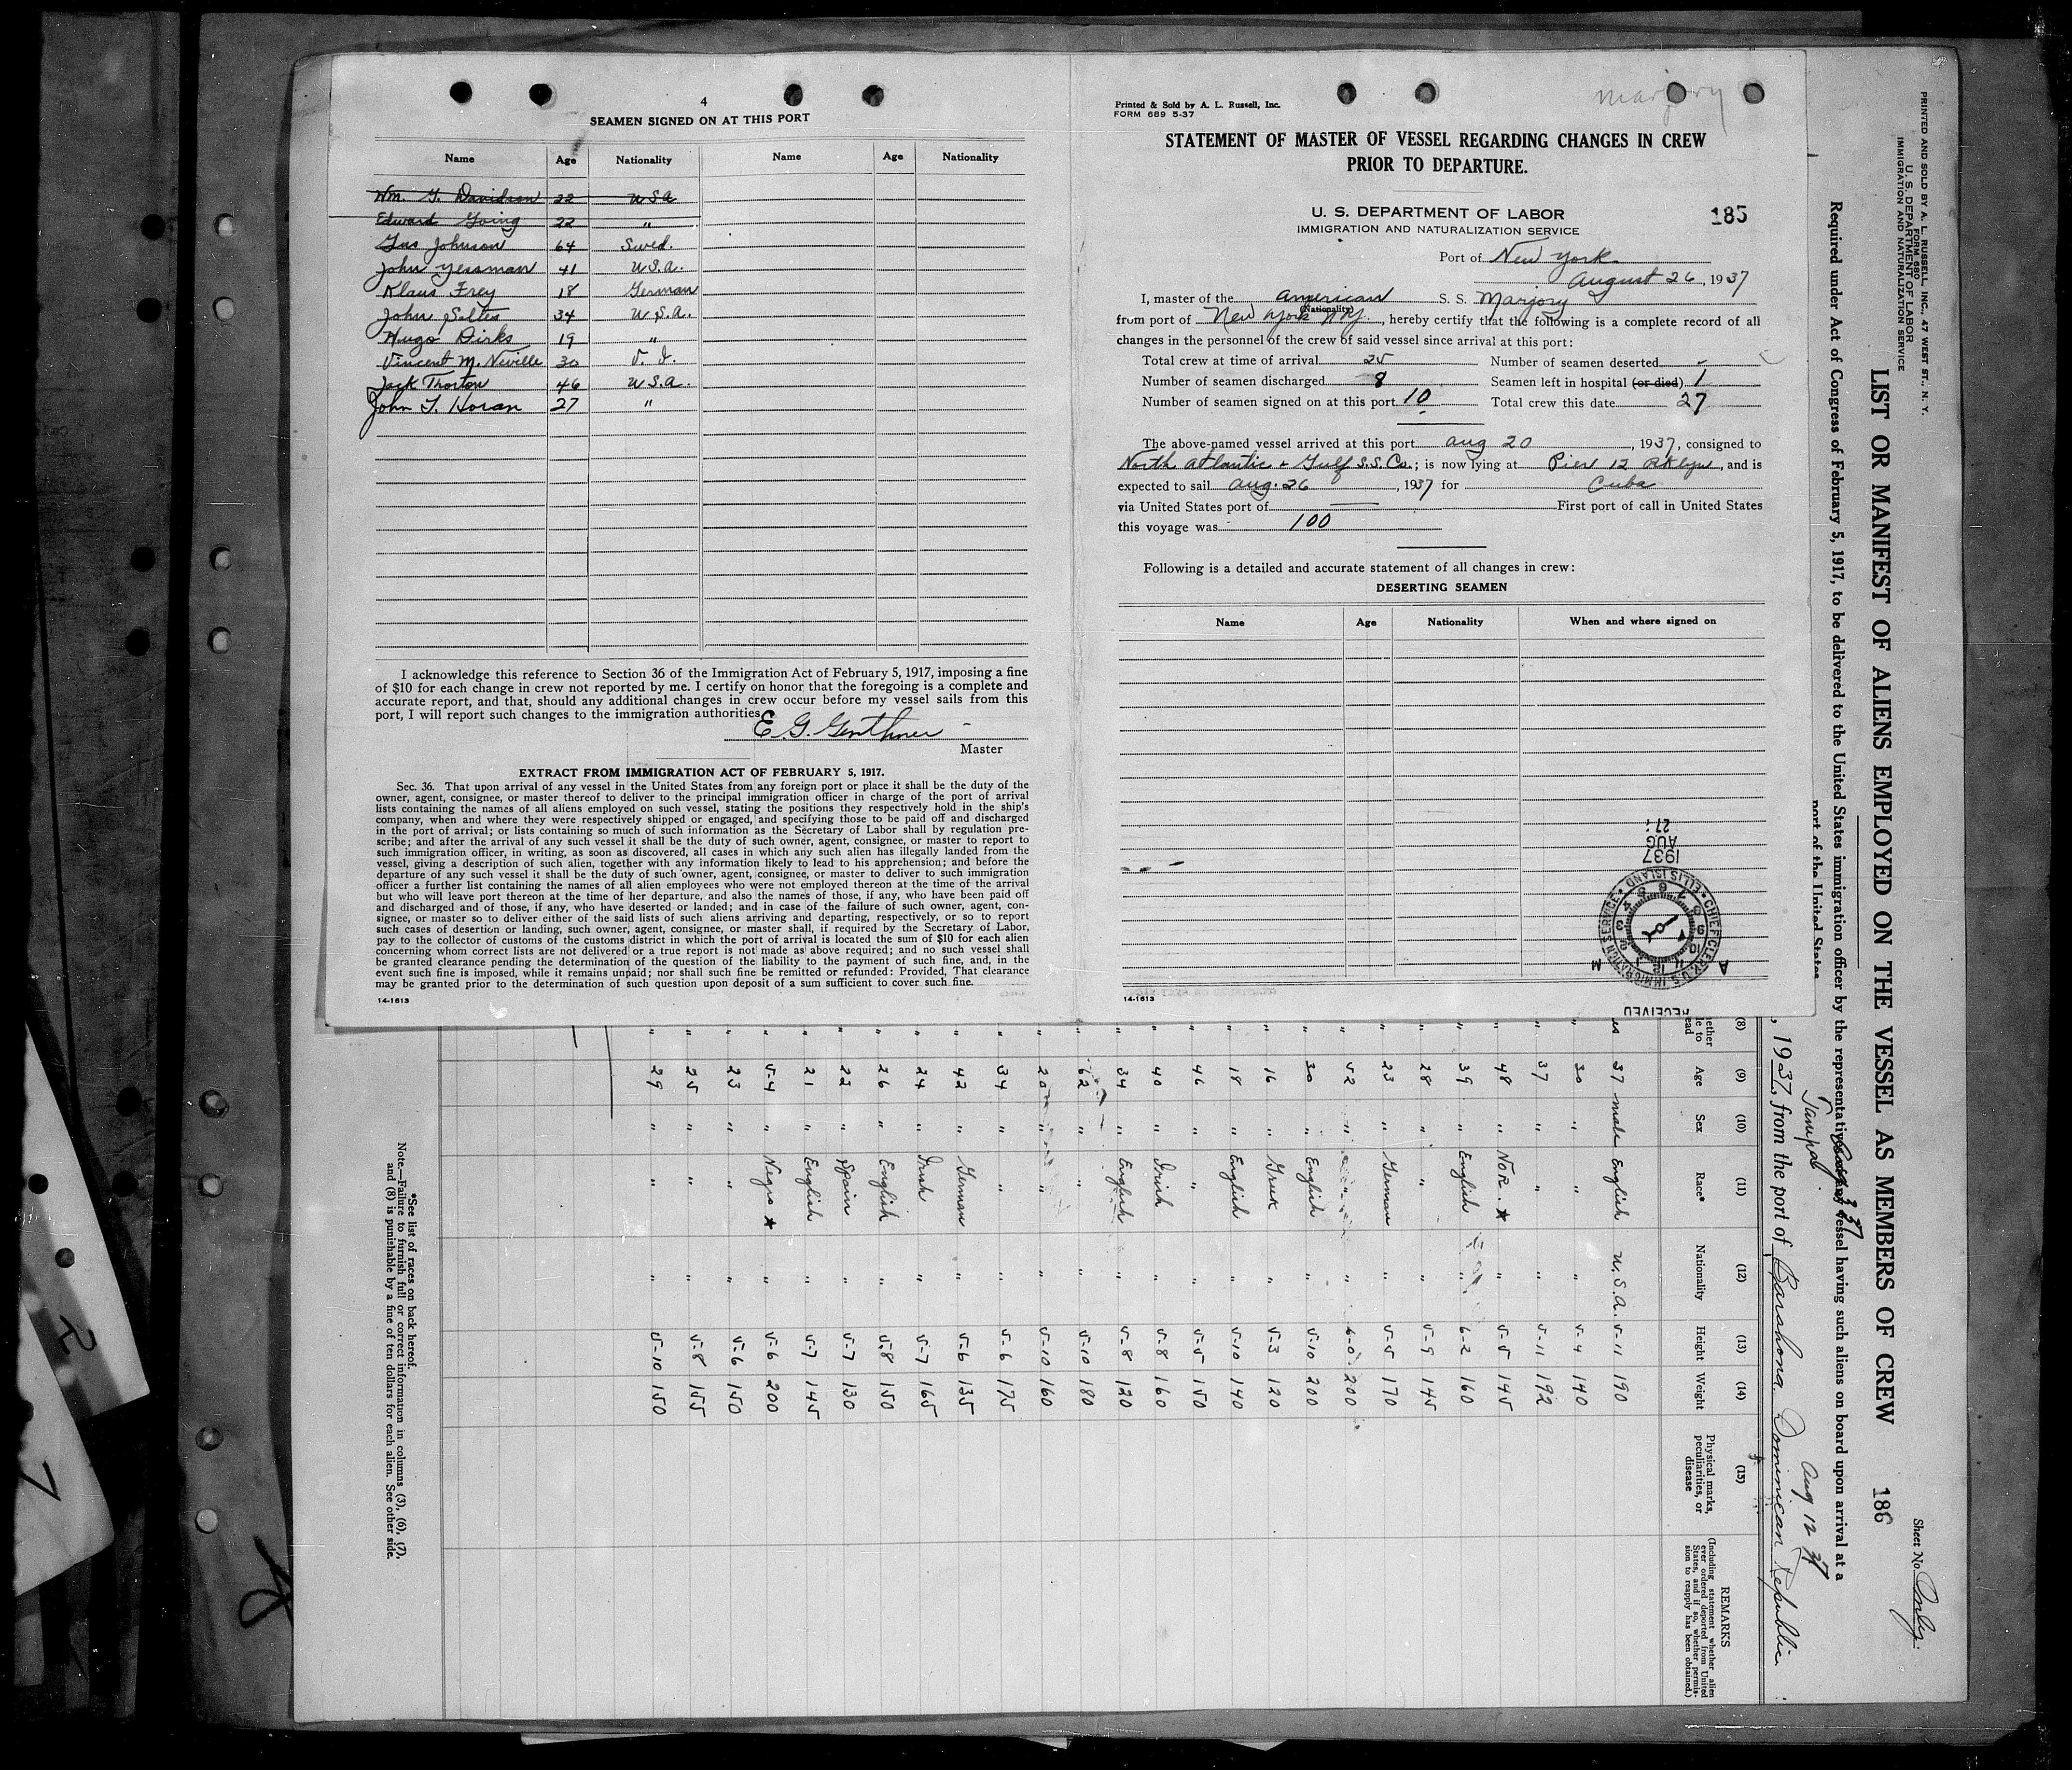 4
SEAMEN SIGNED ON AT THIS PORT
Name Age Nationality Name Age Nationality
Wm. G. Davidson 22 U S A
Edward Going 22 "
Gus Johnson 64 Swed.
John Yessman 41 U.S.A.
Klaus Frey 18 German
John Saltes 34 U.S.A.
Hugo Dirks 19 "
Vincent M. Neville 30 V. I.
Jack Thorton 46 U S.A.
John T. Horan 27 "
I acknowledge this reference to Section 36 of the Immigration Act of February 5, 1917, imposing a fine
of $10 for each change in crew not reported by me. I certify on honor that the foregoing is a complete and
accurate report, and that, should any additional changes in crew occur before my vessel sails from this
port, I will report such changes to the immigration authorities.
E. G. Genthner
Master
EXTRACT FROM IMMIGRATION ACT OF FEBRUARY 5, 1917.
Sec. 36. That upon arrival of any vessel in the United States from any foreign port or place it shall be the duty of the
owner, agent, consignee, or master thereof to deliver to the principal immigration officer in charge of the port of arrival
lists containing the names of all aliens employed on such vessel, stating the positions they respectively hold in the ship's
company, when and where they were respectively shipped or engaged, and specifying those to be paid off and discharged
in the port of arrival; or lists containing so much of such information as the Secretary of Labor shall by regulation pre-
scribe; and after the arrival of any such vessel it shall be the duty of such owner, agent, consignee, or master to report to
such immigration officer, in writing, as soon as discovered, all cases in which any such alien has illegally landed from the
vessel, giving a description of such alien, together with any information likely to lead to his apprehension; and before the
departure of any such vessel it shall be the duty of such owner, agent, consignee, or master to deliver to such immigration
officer a further list containing the names of all alien employees who were not employed thereon at the time of the arrival
but who will leave port thereon at the time of her departure, and also the names of those, if any, who have been paid off
and discharged and of those, if any, who have deserted or landed; and in case of the failure of such owner, agent, con-
signee, or master so to deliver either of the said lists of such aliens arriving and departing, respectively, or so to report
such cases of desertion or landing, such owner, agent, consignee, or master shall, if required by the Secretary of Labor,
pay to the collector of customs of the customs district in which the port of arrival is located the sum of $10 for each alien
concerning whom correct lists are not delivered or a true report is not made as above required; and no such vessel shall
be granted clearance pending the determination of the question of the liability to the payment of such fine, and, in the
event such fine is imposed, while it remains unpaid; nor shall such fine be remitted or refunded: Provided, That clearance
may be granted prior to the determination of such question upon deposit of a sum sufficient to cover such fine.
14-1613
Printed & Sold by A. L. Russell, Inc.
FORM 689 5-37
Marjory
STATEMENT OF MASTER OF VESSEL REGARDING CHANGES IN CREW
PRIOR TO DEPARTURE.
U. S. DEPARTMENT OF LABOR
IMMIGRATION AND NATURALIZATION SERVICE
185
Port of New York
August 26, 1937
I, master of the American S. S. Marjory
(Nationality)
from port of New York N.Y., hereby certify that the following is a complete record of all
changes in the personnel of the crew of said vessel since arrival at this port:
Total crew at time of arrival 25 Number of seamen deserted -
Number of seamen discharged 8 Seamen left in hospital (or died) 1
Number of seamen signed on at this port 10 Total crew this date 27
The above-named vessel arrived at this port Aug 20, 1937, consigned to
North Atlantic & Gulf S.S. Co.; is now lying at Pier 12 Bklyn, and is
expected to sail Aug. 26, 1937 for Cuba
via United States port of — First port of call in United States
this voyage was 100
Following is a detailed and accurate statement of all changes in crew:
DESERTING SEAMEN
Name Age Nationality When and where signed on
1937
AUG
27
CHIEF CLERK, U.S. IMMIGRATION SERVICE
ELLIS ISLAND
A M
RECEIVED
14-1613
PRINTED AND SOLD BY A. L. RUSSELL, INC., 47 WEST ST., N. Y.
FORM 680
U. S. DEPARTMENT OF LABOR
IMMIGRATION AND NATURALIZATION SERVICE
Sheet No. Only
LIST OR MANIFEST OF ALIENS EMPLOYED ON THE VESSEL AS MEMBERS OF CREW 186
Required under Act of Congress of February 5, 1917, to be delivered to the United States immigration officer by the representative of any vessel having such aliens on board upon arrival at a
port of the United States
Aug 12 37
, 1937, from the port of Barahona Dominican Republic.
(8) (9) (10) (11) (12) (13) (14) (15)
Age Sex Race* Nationality Height Weight Physical marks, peculiarities, or disease
REMARKS
(Including statement whether alien
ever ordered deported from United
States, and if so, whether permis-
sion to reapply has been obtained.)
37 male English U.S.A. 5-11 190
30 " " " 5-4 140
37 " " " 5-11 192
48 " NOR. ★ " 5-5 145
39 " English " 6-2 160
28 " " " 5-9 145
23 " German " 5-5 170
52 " " " 6-0 200
30 " English " 5-10 200
16 " Greek " 5-3 120
18 " English " 5-10 140
46 " " " 5-5 150
40 " Irish " 5-8 160
34 " English " 5-8 120
62 " " " 5-10 180
20 " " " 5-10 160
34 " " " 5-6 175
42 " German " 5-6 135
24 " Irish " 5-7 165
26 " English " 5-8 150
22 " Spain " 5-7 130
21 " English " 5-7 145
54 " Negro ★ " 5-6 200
23 " " " 5-6 150
25 " " " 5-8 155
29 " " " 5-10 150
*See list of races on back hereof.
Note.—Failure to furnish full or correct information in columns (3), (6), (7),
and (8) is punishable by a fine of ten dollars for each alien. See other side.
2
7